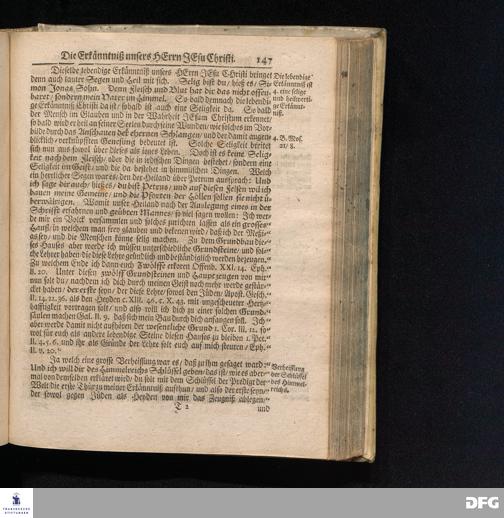 Die Erkänntniß unsers HErrn JEsu Christi. 147
Dieselbe lebendige Erkänntniß unsers HErrn JEsu Christi bringet
denn auch lauter Segen und Heil mit sich. Selig bist du/ hieß es/ Si-
mon Jonas Sohn. Denn Fleisch und Blut hat dir das nicht offen-
baret/ sondern mein Vater im Himmel. So bald demnach die lebendi-
ge Erkänntniß Christi da ist/ so bald ist auch eine Seligkeit da. So bald
der Mensch im Glauben und in der Wahrheit JEsum Christum erkennet/
so bald wird er heil an seiner Seelen durch seine Wunden/ wie solches im Vor-
bilde durch das Anschauen der ehernen Schlangen/ und der damit augen-
blicklich/ verknüpften Genesung bedeutet ist. Solche Seligkeit breitet
sich nun aus sowol über dieses als jenes Leben. Doch ist es keine Selig-
keit nach dem Fleisch/ aber die in irdischen Dingen bestehet/ sondern eine
Seligkeit im Geist/ und die da bestehet in himmlischen Dingen. Welch
ein herrlicher Segen war es/ da der Heiland über Petrum aussprach: Und
ich sage dir auch/ du bist Petrus/ und auf diesen Felsen wil ich
bauen meine Gemeine/ und die Pforten der Höllen sollen sie nicht ü-
berwältigen. Womit unser Heiland nach der Auslegung eines in der
Schrifft erfahrnen und geübten Mannes/ so viel sagen wollen: Ich wer-
de mir ein Volck versammlen und solches zurichten lassen als ein grosses
Hauß/ in welchem man frey glauben und bekennen wird/ daß ich der Meßi-
as sey/ und die Menschen könne selig machen. Zu dem Grundbau die-
ses Hauses aber werde ich müssen unterschiedliche Grundsteine/ und sol-
che Lehrer haben/ die diese Lehre gründlich und beständiglich werden bezeugen.
Zu welchem Ende ich dann euch Zwölffe erkoren Offenb. XXI. 14. Eph.
II. 20. Unter diesen zwölff Grundsteinen und Hauptzeugen von mir
nun solt du/ nachdem ich dich durch meinen Geist noch mehr werde gestär-
cket haben/ der erste seyn/ der diese Lehre/ sowol den Jüden/ Apost. Gesch.
II. 14. 22. 36. als den Heyden c. XIII. 46. c. X. 43. mit ungescheueter Hertz-
hafftigkeit vortragen solt/ und also will ich dich zu einer solchen Grund-
säulen machen Gal. II. 9. daß sich mein Bau durch dich anfangen soll. Ich
aber werde damit nicht aufhören der wesentliche Grund 1. Cor. III. 11. so-
wol für euch als andere lebendige Steine dieses Hauses zu bleiben 1. Pet.
II. 4. 5. 6. und ihr als Gründe der Lehre solt euch auf mich steuren/ Eph.
II. v. 20.
Ja welch eine grosse Verheissung war es/ daß zu ihm gesaget ward:
Und ich will dir des Himmelreichs Schlüssel geben/ das ist/ wie es aber-
mal von demselben erkläret wird/ du solt mit dem Schlüssel der Predigt der
Welt die erste Thür zu meiner Erkänntniß aufthun/ und also der erste seyn/
der sowol gegen Jüden als Heyden von mir das Zeugniß ablegen/
T 2 und
Die lebendige
Erkänntniß ist
4. eine selige
und heilwerti-
ge Erkännt-
niß.
4. B. Mos.
21/ 8.
Verheissung
der Schlüssel
des Himmel-
reichs.
FRANCKESCHE
STIFTUNGEN
DFG